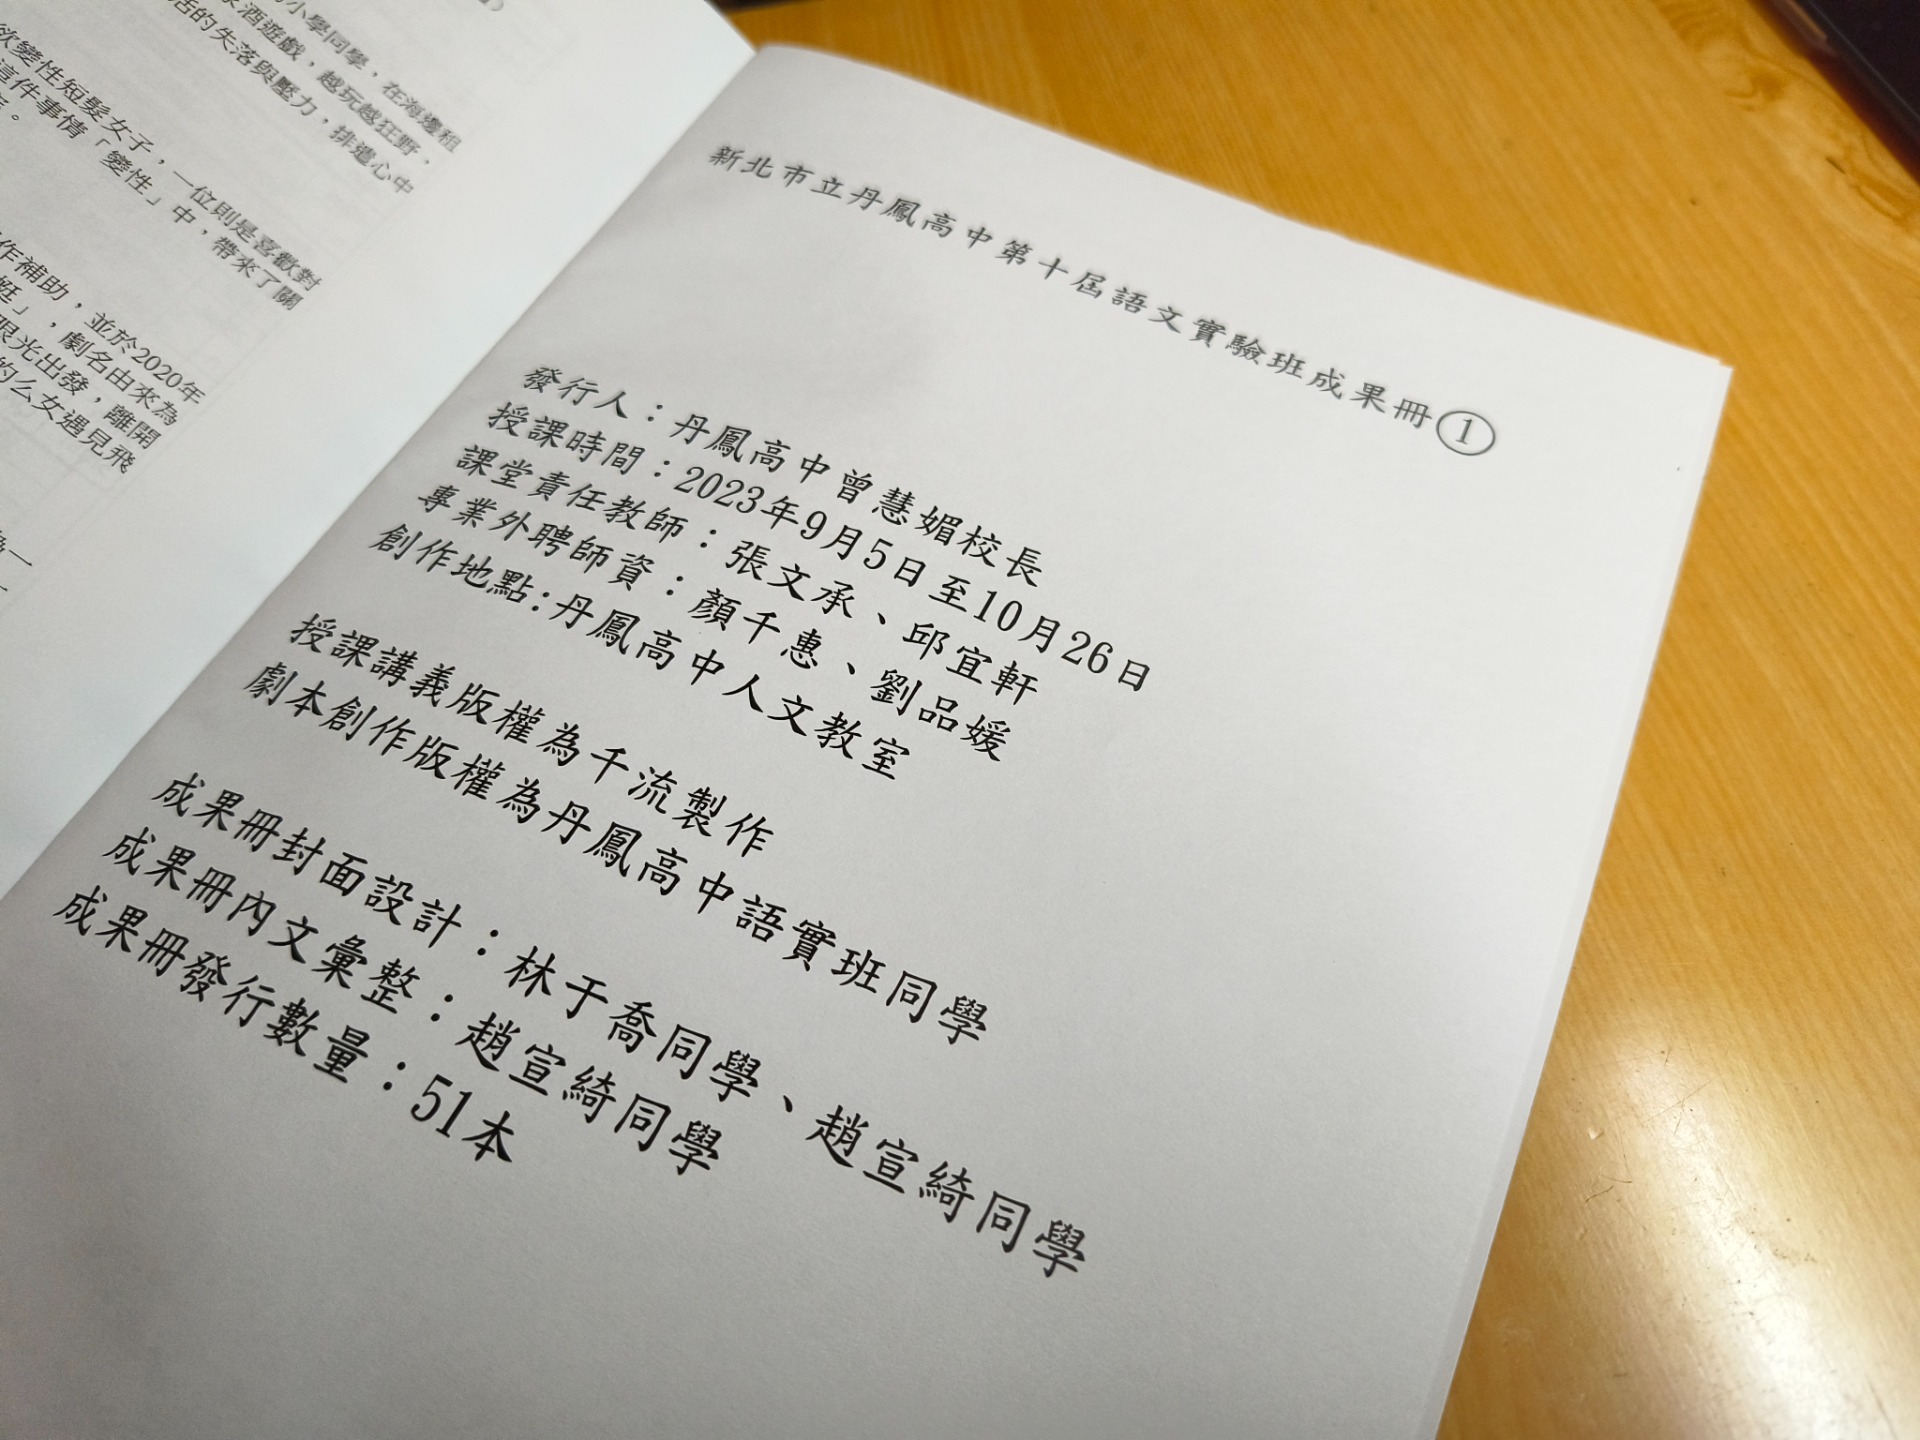 小學同學，在海邊租
酒遊戲，越玩越狂野，
活的失落與壓力，排遣心中
欲變性短髮女子，一位則是喜歡對
這件事情「變性」中，帶來了關
作補助，並於2020年
」，劇名由來為
眼光出發，離開
的么女遇見飛
新北市立丹鳳高中第十屆語文實驗班成果冊①
發行人：丹鳳高中曾慧媚校長
授課時間：2023年9月5日至10月26日
課堂責任教師：張文承、邱宜軒
專業外聘師資：顏千惠、劉品媛
創作地點:丹鳳高中人文教室
授課講義版權為千流製作
劇本創作版權為丹鳳高中語實班同學
成果冊封面設計：林于喬同學、趙宣綺同學
成果冊內文彙整：趙宣綺同學
成果冊發行數量：51本